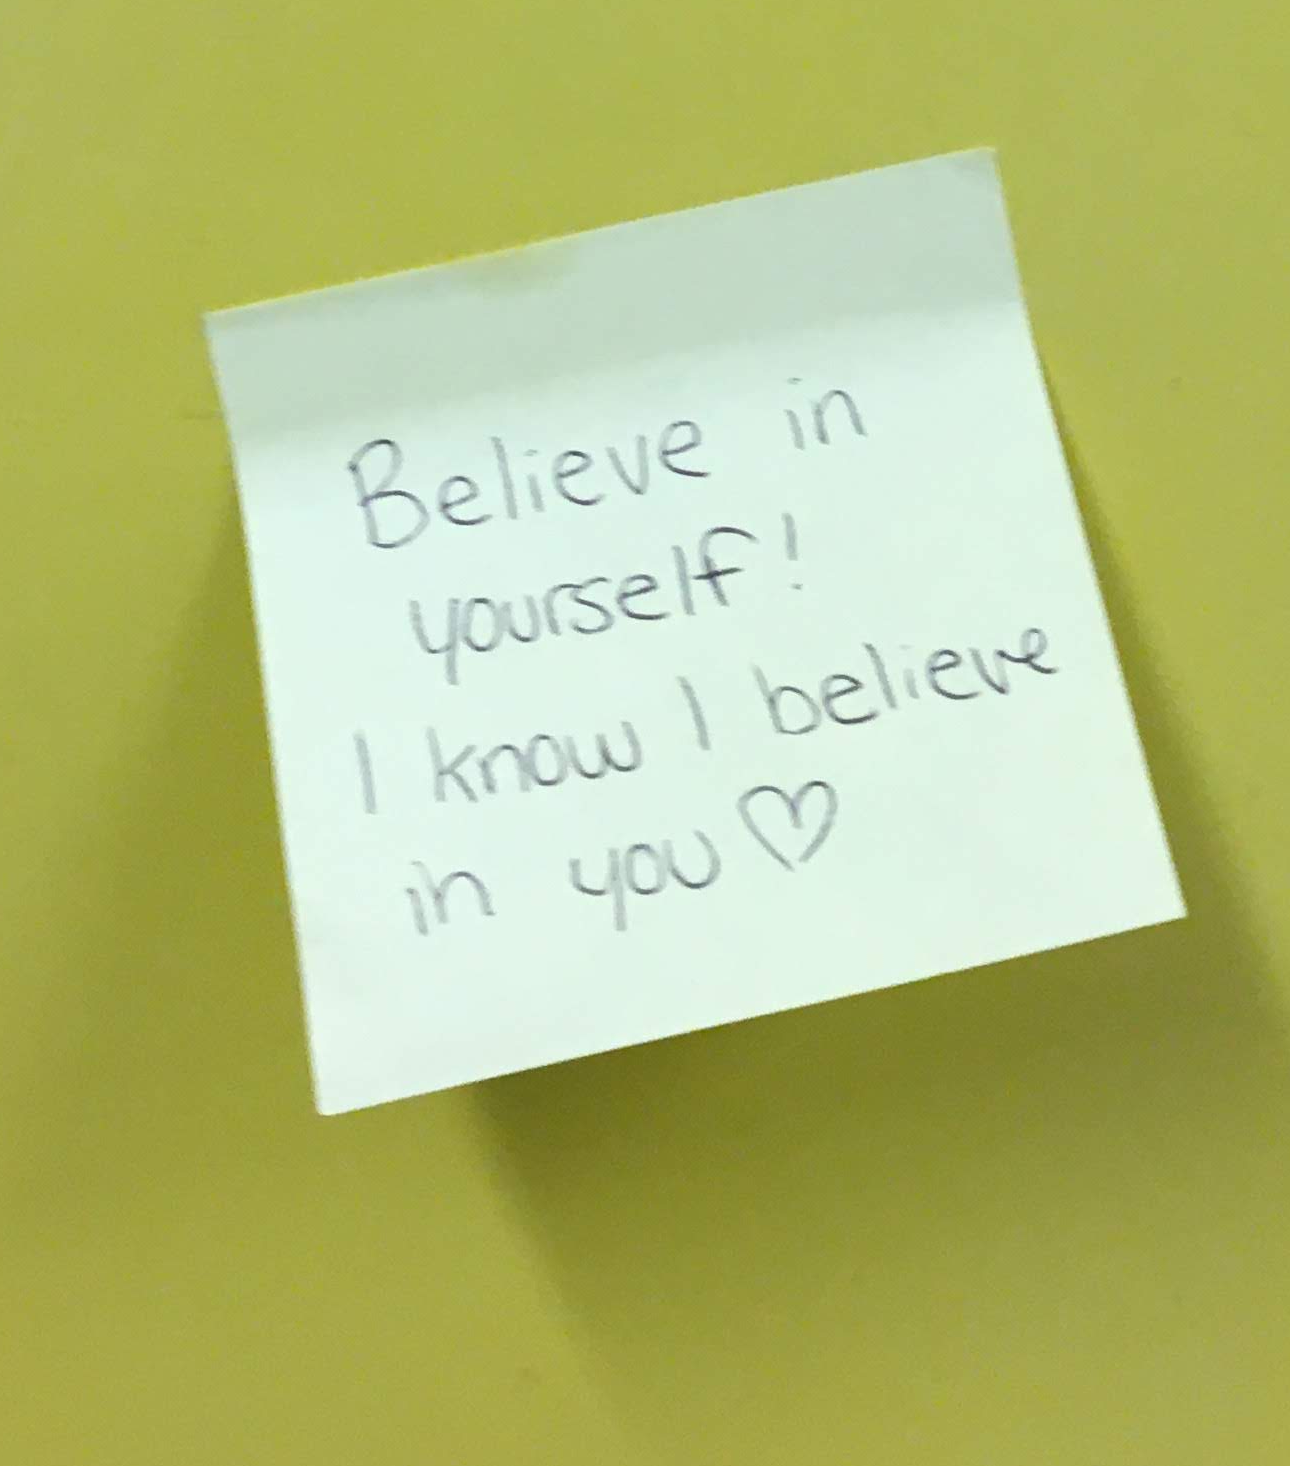 Believe in
yourself!
I know I believe
in you ♡